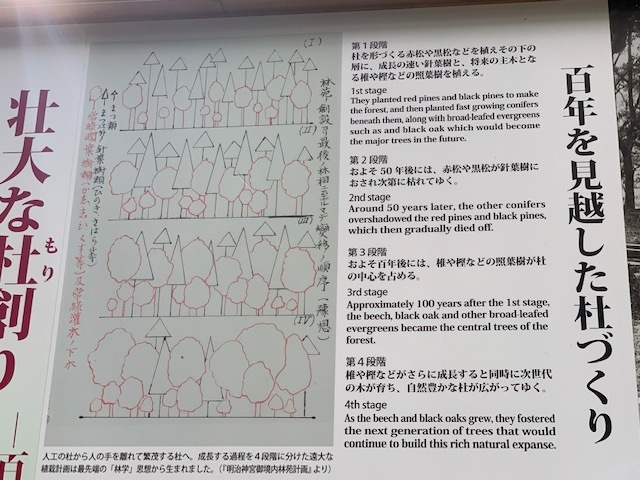 百年を見越した杜づくり
壮大な杜創り
もり
第1段階
杜を形づくる赤松や黒松などを植えその下の
層に、成長の速い針葉樹と、将来の主木とな
る椎や樫などの照葉樹を植える。
1st stage
They planted red pines and black pines to make
the forest, and then planted fast growing conifers
beneath them, along with broad-leafed evergreens
such as and black oak which would become
the major trees in the future.
第2段階
およそ50年後には、赤松や黒松が針葉樹に
おされ次第に枯れてゆく。
2nd stage
Around 50 years later, the other conifers
overshadowed the red pines and black pines,
which then gradually died off.
第3段階
およそ百年後には、椎や樫などの照葉樹が杜
の中心を占める。
3rd stage
Approximately 100 years after the 1st stage,
the beech, black oak and other broad-leafed
evergreens became the central trees of the
forest.
第4段階
椎や樫などがさらに成長すると同時に次世代
の木が育ち、自然豊かな杜が広がってゆく。
4th stage
As the beech and black oaks grew, they fostered
the next generation of trees that would
continue to build this rich natural expanse.
(I)
(II)
(III)
(IV)
林苑ノ創設ヨリ最後ノ林相ニ至ルマデ変移ノ順序(豫想)
人工の杜から人の手を離れて繁茂する杜へ。成長する過程を4段階に分けた遠大な
植栽計画は最先端の「林学」思想から生まれました。(『明治神宮御境内林苑計画』より)